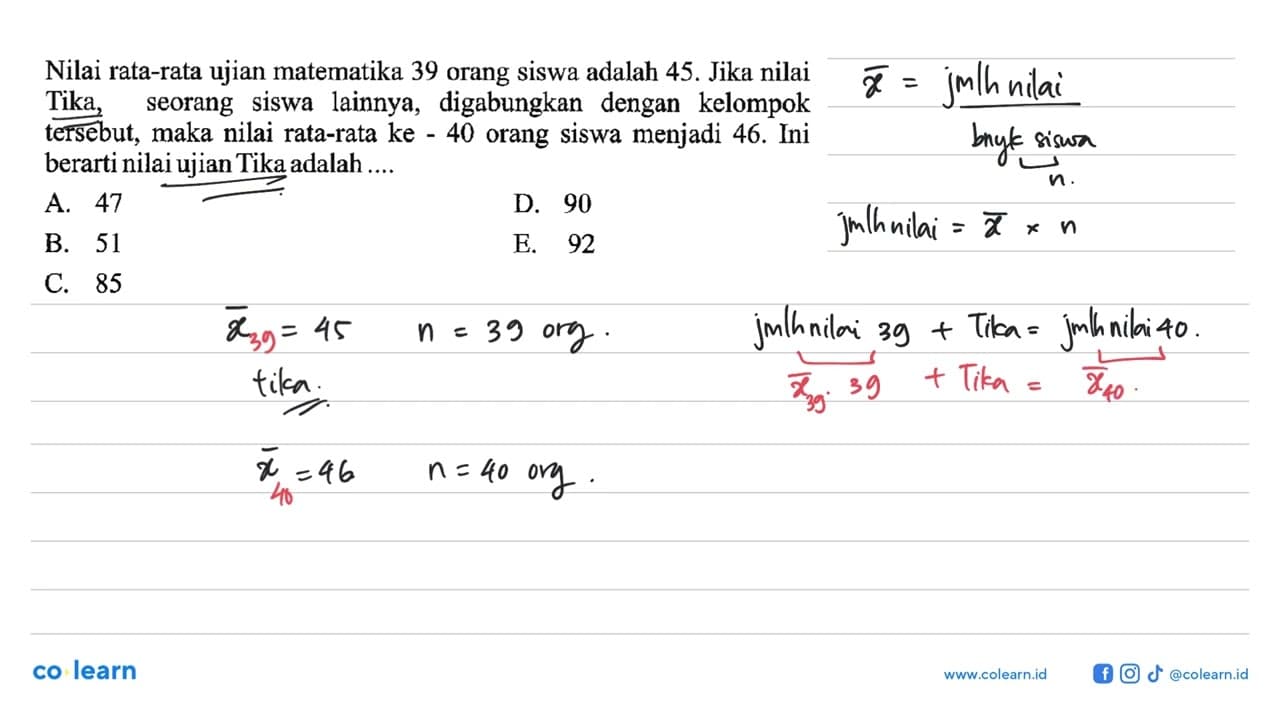 Nilai rata-rata ujian matematika 39 orang siswa adalah 45. Jika nilai
Tika, seorang siswa lainnya, digabungkan dengan kelompok
tersebut, maka nilai rata-rata ke - 40 orang siswa menjadi 46. Ini
berarti nilai ujian Tika adalah ....
A. 47
B. 51
C. 85
D. 90
E. 92
x̄ = jmlh nilai
bnyk siswa
n.
jmlh nilai = x̄ × n
x̄39 = 45 n = 39 org.
tika.
x̄40 = 46 n = 40 org.
jmlh nilai 39 + Tika = jmlh nilai 40.
x̄39. 39 + Tika = x̄40.
co learn
www.colearn.id
@colearn.id